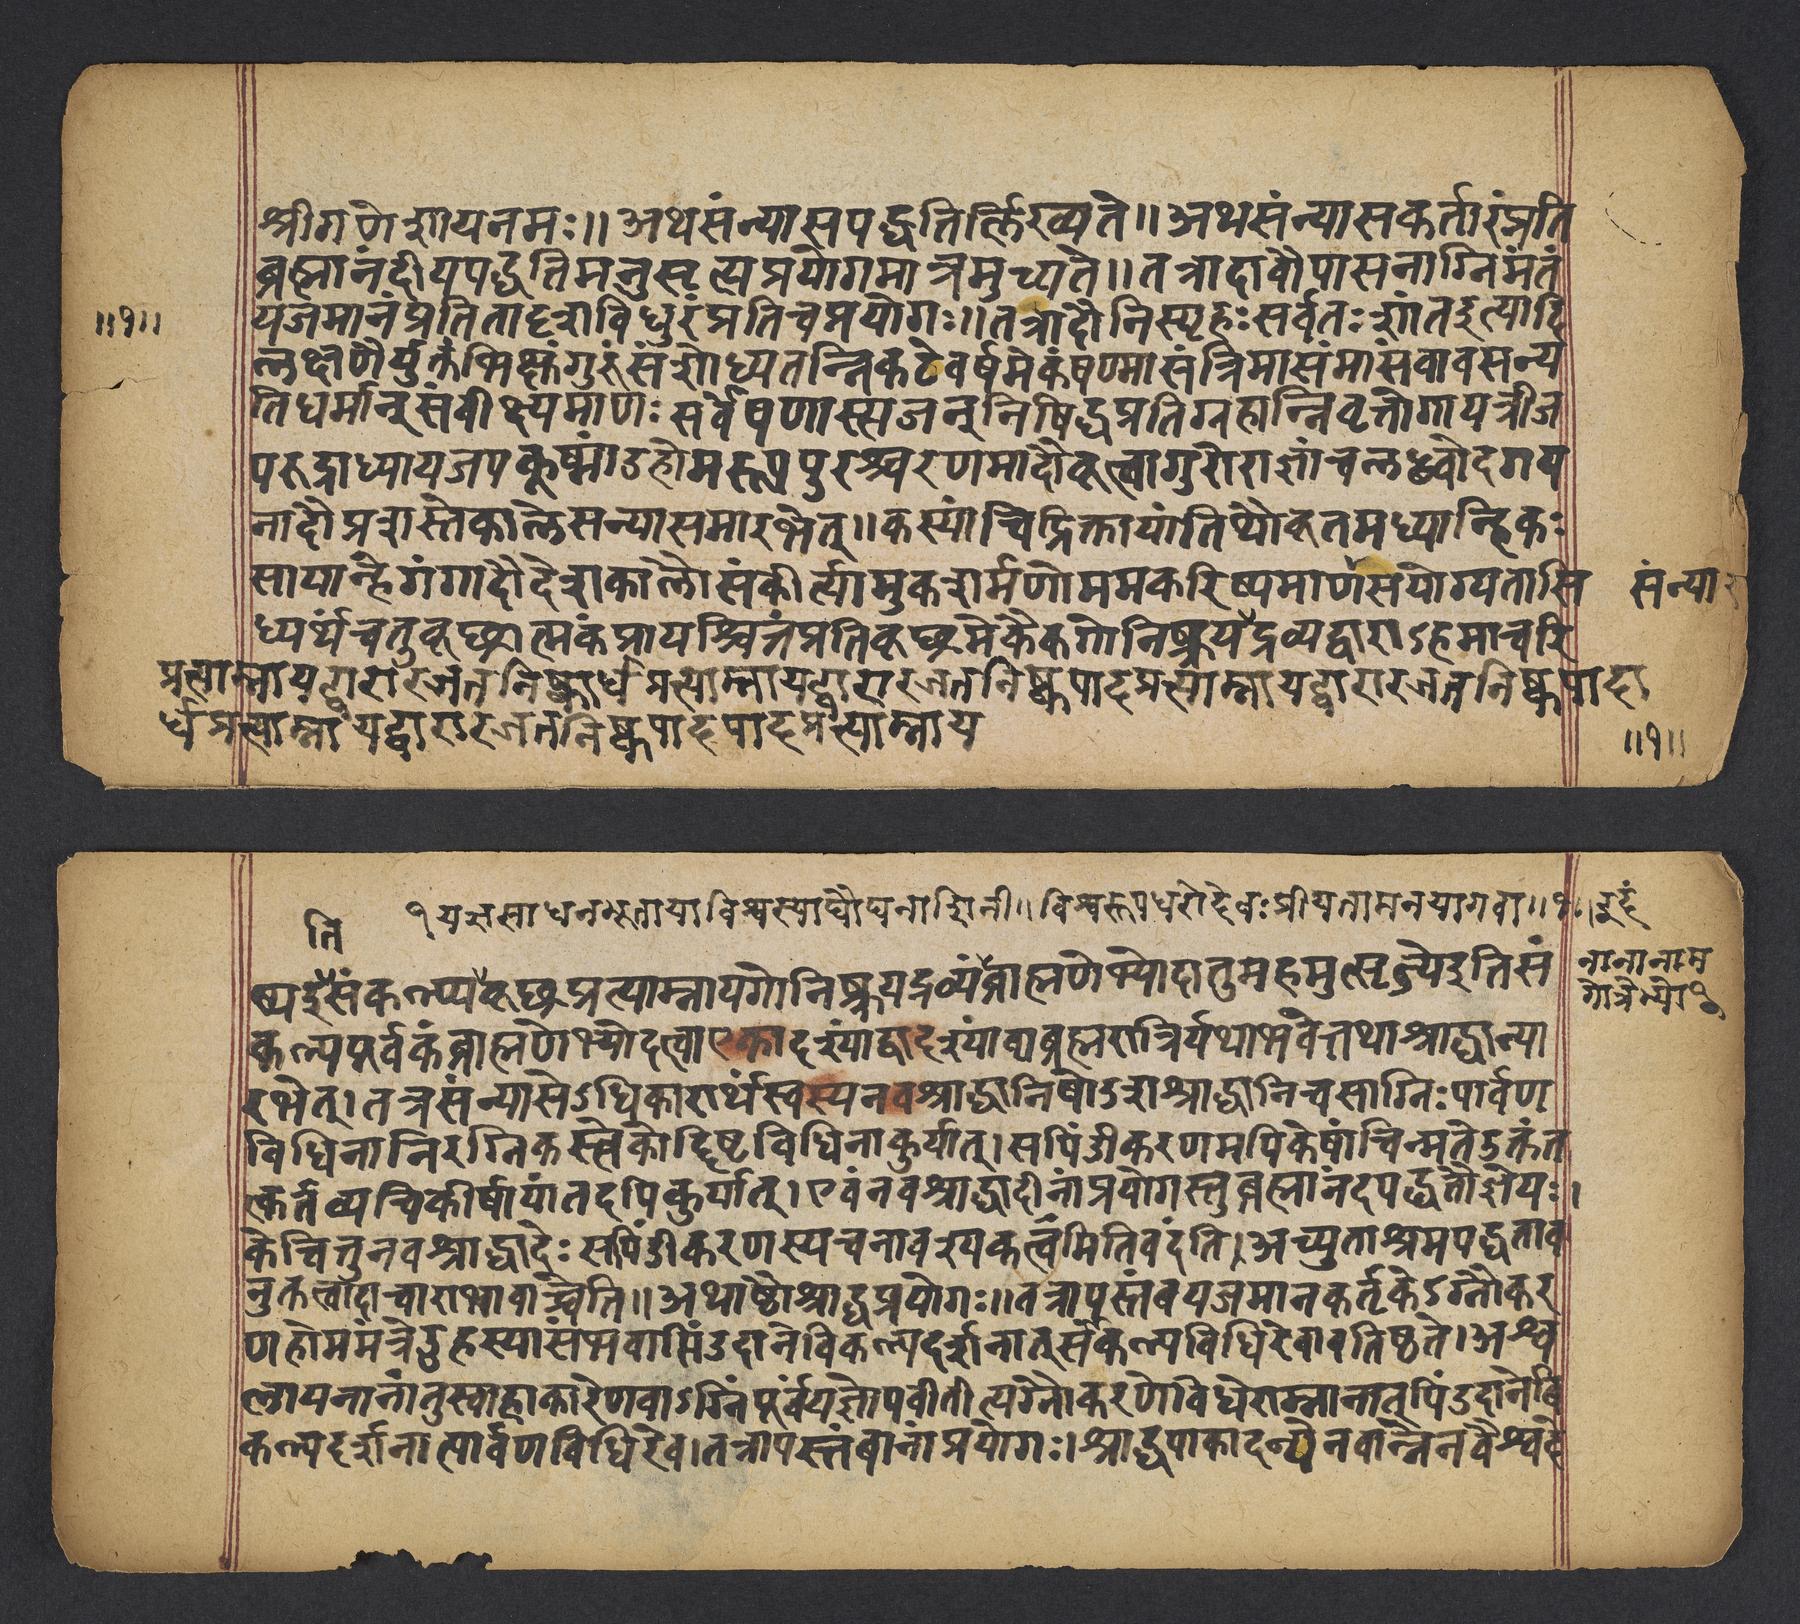 श्रीगणेशायनमः॥ अथसंन्यासपद्धतिर्लिख्यते॥ अथसंन्यासकर्तारंप्रति
ब्रह्मानंदीयपद्धतिमनुसृत्यप्रयोगमात्रमुच्यते॥ तत्रादावौपासनाग्निमंतं
॥१॥
यजमानंप्रतितादृशविधुरंप्रतिचप्रयोगः॥ तत्रादौनिस्पृहःसर्वतःशांतइत्यादि
लक्षणैर्युक्तंभिक्षुंगुरुंसंशोध्यतन्निकटेवर्षमेकंषण्मासंत्रिमासंमासंवावसन्य
तिधर्मानुसंवीक्ष्यमाणः सर्वेषणास्सजनुनिषिद्धप्रतिग्रहान्निवृत्तोगायत्रीज
परुद्राध्यायजपकूष्मांडहोमरूपपुरश्चरणमादौकृत्वागुरोराज्ञांचलब्ध्वोदगय
नादौप्रशस्तेकालेसन्यासमारभेत्॥ कस्यांचिद्रिक्तायांतिथौकृतमध्यान्हिकः
सायान्हेगंगादौदेशकालौसंकीर्त्यामुकशर्मणोममकरिष्यमाणसंयोग्यतासि
संन्यास
ध्यर्थंचतुकृछ्रात्मकंप्रायश्चित्तंप्रतिकृछ्रमेकैकगोनिष्क्रयद्रव्यद्वाराऽहमाचरि
प्रत्याम्नायद्वारारजतनिष्कार्धप्रत्याम्नायद्वारारजतनिष्कपादप्रत्याम्नायद्वारारजतनिष्कपादा
र्धप्रत्याम्नायद्वारारजतनिष्कपादपादप्रत्याम्नाय
॥१॥
१यज्ञसाधनभूतायाविश्वस्याघौघनाशिनी॥ विश्वरूपधरोदेवःप्रीयतामनयागवा॥१॥इदं
ति
नानानाम
गोत्रेभ्यो
ष्यइतिसंकल्प्यकृछ्रप्रत्याम्नायगोनिष्क्रयद्रव्यंब्राह्मणेभ्योदातुमहमुत्सृज्येइतिसं
कल्पपूर्वकंब्राह्मणेभ्योदत्वाएकादश्यांद्वादश्यांवाब्रह्मरात्रिर्यथाभवेत्तथाश्राद्धान्या
रभेत्। तत्रसंन्यासेऽधिकारार्थंस्वस्यनवश्राद्धानिषोडशश्राद्धानिचसाग्निःपार्वण
विधिनानिरग्निकस्त्वेकोद्दिष्टविधिनाकुर्यात्। सपिंडीकरणमपिकेषांचिन्मतेउक्तंत
त्कर्तव्यचिकीर्षायांतदपिकुर्यात्। एवंनवश्राद्धादीनांप्रयोगस्तुब्रह्मानंदपद्धतौज्ञेयः।
केचित्तुनवश्राद्धादेःसपिंडीकरणस्यचनावश्यकत्वंमितिवदंति। अच्युताश्रमपद्धताव
नुक्तत्वादाचाराभावाच्चेति॥ अथाष्टौश्राद्धप्रयोगः॥ तत्रापस्तंबयजमानकर्तृकेऽग्नौकर
णहोममंत्रेऽुहस्यासंभवात्पिंडदानेविकल्पदर्शनात्संकल्पविधिरेवावतिष्ठते। अश्व
लायनानांतुस्वाहाकारेणवाऽग्निंपूर्वंयज्ञोपवीतीत्यग्नौकरणेविधेराम्नानात्पिंडदानेवि
कल्पदर्शनात्पार्वणविधिरेव। तत्रापस्तंबानांप्रयोगः। श्राद्धपाकादन्येनवान्नेनवैश्वदे